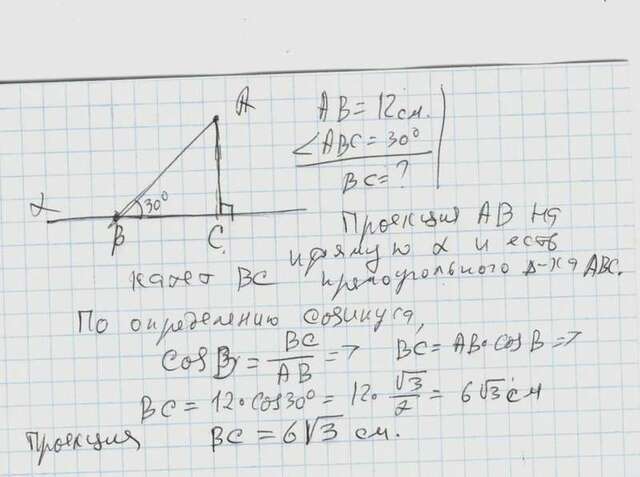 A
AB = 12 см.
∠ABC = 30°
BC = ?
α
30°
B
C
Проекция AB на
прямую α и есть
катет BC прямоугольного Δ-ка ABC.
По определению косинуса,
cos B = BC/AB => BC = AB·cos B =>
BC = 12·cos 30° = 12·√3/2 = 6√3 см
Проекция BC = 6√3 см.